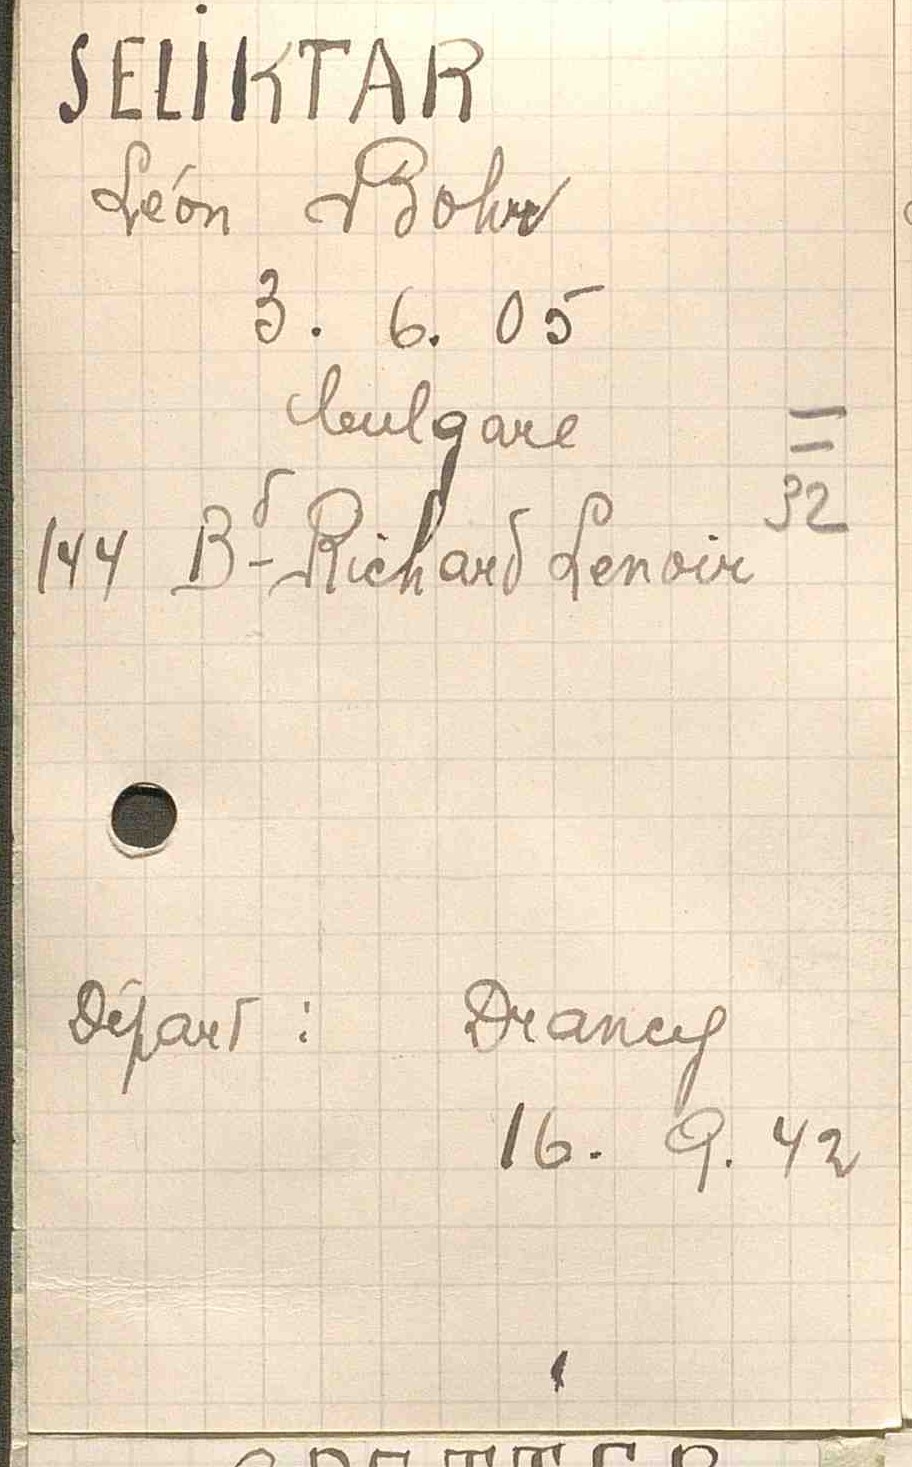 SELIKTAR
Léon Bohr
3. 6. 05
bulgare
32
144 Bd- Richard Lenoir
Départ : Drancy
16. 9. 42